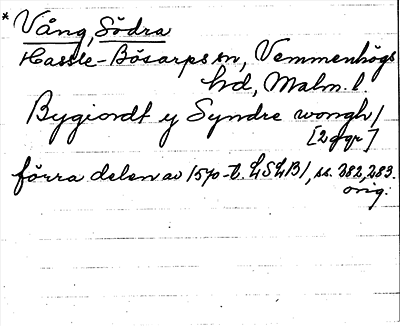 * Vång, Södra
Hassle-Bösarps sn, Vemmenhögs
hd, Malm. l.
Bygiordt y Syndre wongh/
[2 ggr]
förra delen av 1570-t. LSLB/, ss. 282, 283.
orig.